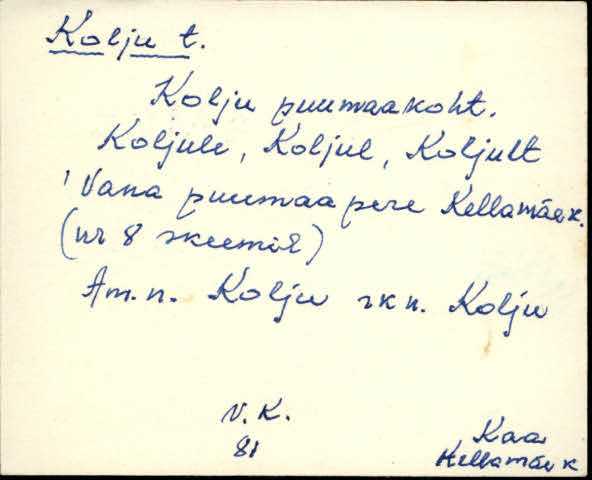 Kolju t.
Kolju puumaakoht.
Koljule, Koljul, Koljult
'Vana puumaapere Kellamäe k.
(nr 8 skeemil)
Am.n. Kolju rkn. Kolju
V.K.
81
Kaa
Kellamäe k